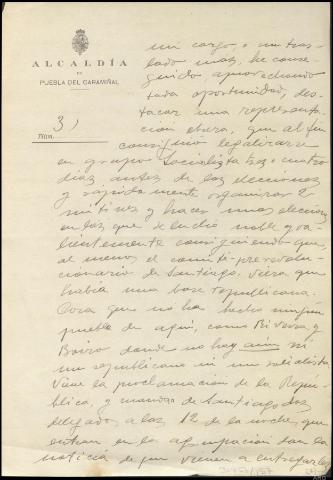 ALCALDÍA
DE
PUEBLA DEL CARAMIÑAL
NÚM. 3)
mi cargo, o un tras-
lado más, he conse-
guido aprovechando
toda oportunidad, des-
tacar una representa-
ción obrera, que al fin
consiguió legalizarse
en grupo Socialista tres o cuatro
días antes de las elecciones
y rápidamente organizar 2
mitines y hacer unas elecciones
en las que se luchó noble y va-
lientemente consiguiendo que,
al menos el comité prerevolu-
cionario de Santiago, viera que
había una base republicana.
Cosa que no ha hecho ningún
pueblo de aquí, como Riveira y
Boiro donde no hay aún ni
un republicano ni un socialista.
Viene la proclamación de la Repu-
blica, y mandan de Santiago dos
delegados a las 12 de la noche, que
entran en la agrupación dan la
noticia de que vienen a entregarles